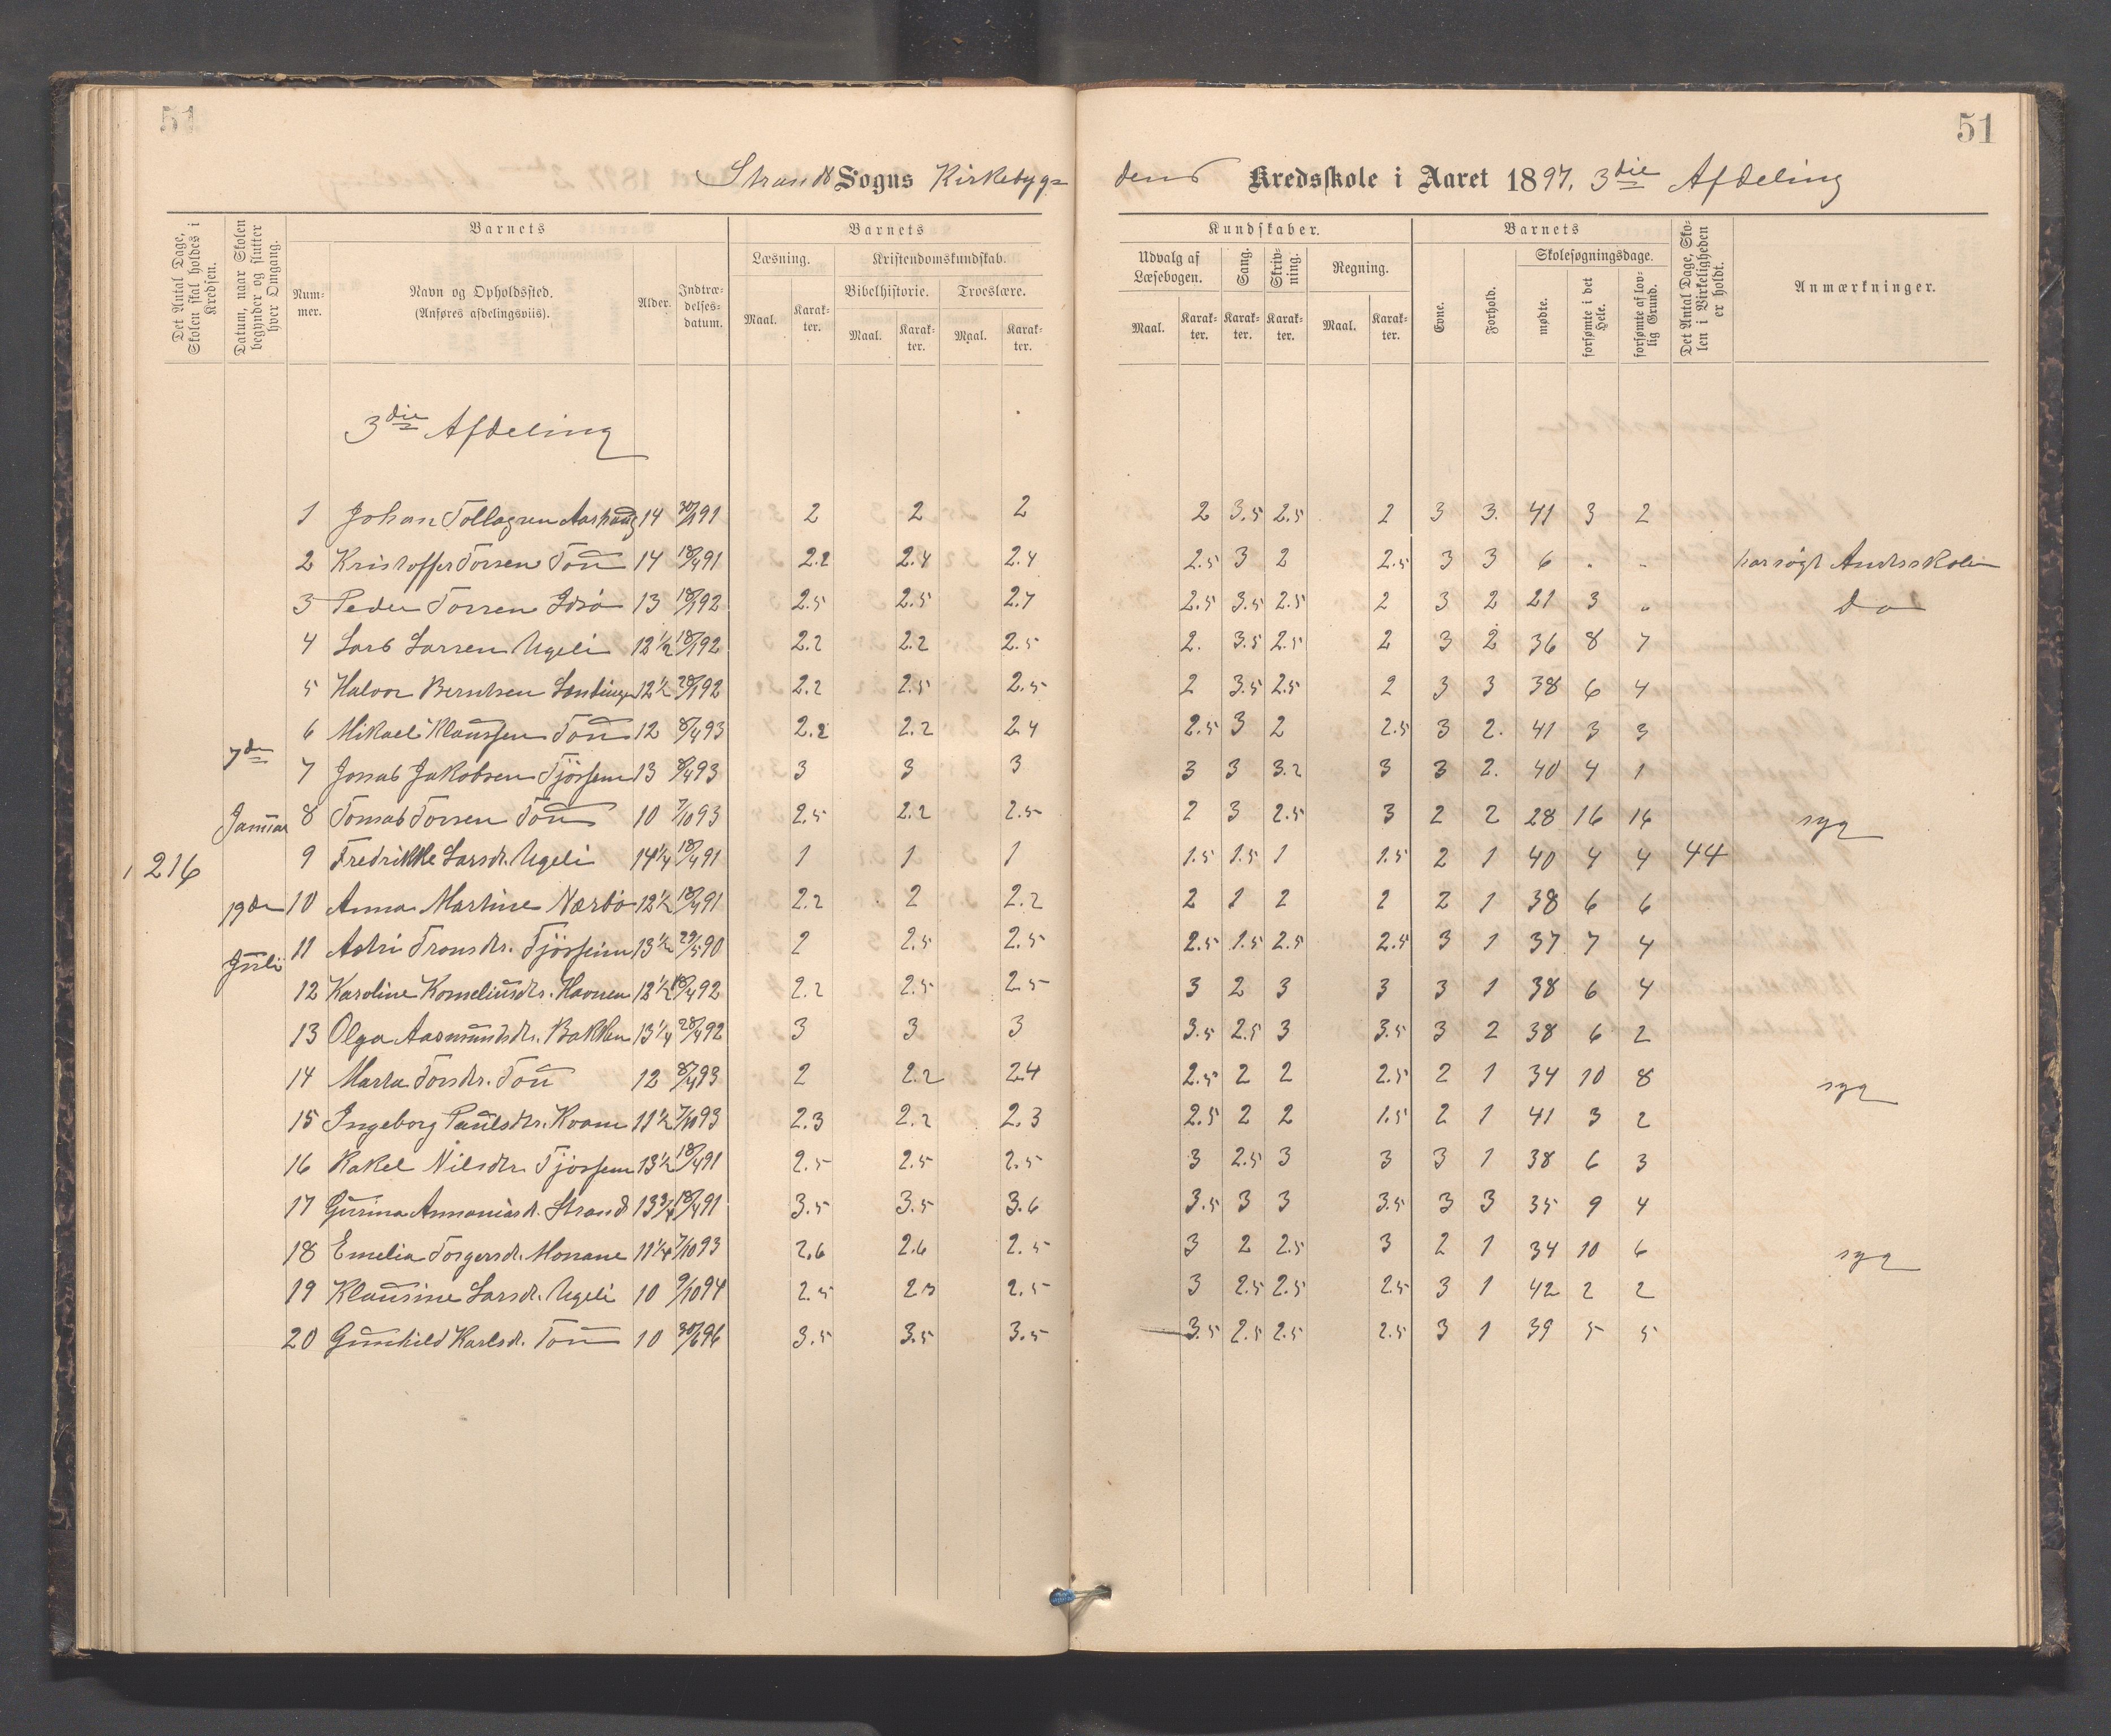 51
51
Strands Sogns Kirkebygdens Kredsskole i Aaret 1897. 3die Afdeling
Det Antal Dage, Skolen skal holdes i Kredsen.
Datum, naar Skolen begynder og slutter hver Omgang.
Barnets
Nummer.
Navn og Opholdssted.
(Anføres afdelingsviis).
Alder.
Indtrædelsesdatum.
Barnets
Læsning.
Maal.
Karakter.
Kristendomskundskab.
Bibelhistorie.
Maal.
Karakter.
Troeslære.
Maal.
Karakter.
Kundskaber.
Udvalg af Læsebogen.
Maal.
Karakter.
Sang.
Karakter.
Skrivning.
Karakter.
Regning.
Maal.
Karakter.
Barnets
Evne.
Forhold.
Skolesøgningsdage.
mødte.
forsømte i det Hele.
forsømte af lovlig Grund.
Det Antal Dage, Skolen i Virkeligheden er holdt.
Anmærkninger.
3die Afdeling
1 Johan Tollagsen 14 2 2 2 2 3.5 2.5 2 3 3. 41 3 2
2 Kristoffer Torsen Tou 14 18/4 91 2.2 2.4 2.4 2.5 3 2 2.5 3 3 6 " " har søgt
3 Peder Torsen Idsø 13 2.5 2.5 2.7 2.5 3.5 2.5 2 3 2 21 3 " do
4 Lars Larsen Ugeli 12 1/2 2.2 2.2 2.5 2. 3.5 2.5 2 3 2 36 8 7
5 Halvor Berntsen 12 1/2 2.2 2.5 2.5 2 3.5 2.5 2 3 3 38 6 4
6 Mikael Klaussen Tou 12 8/4 93 2.2 2.2 2.4 2.5 3 2 2.5 3 2. 41 3 3
7de
7 Jonas Jakobsen Tjøssem 13 8/4 93 3 3 3 3 3 3.2 3 3 2. 40 4 1
Januar
8 Tomas Torsen Tou 10 7/10 93 2.5 2.2 2.5 2 3 2.5 3 2 2 28 16 16 syg
216
9 Fredrikke Larsdr. Ugeli 14 1/4 18/4 91 1 1 1 1.5 1.5 1 1.5 2 1 40 4 4 44
19de
10 Anna Martine Nærbø 12 1/2 18/4 91 2.2 2 2.2 2 1 2 2 2 1 38 6 6
Juli
11 Astri Tronsdr. Tjøssem 13 1/2 29/5 90 2 2.5 2.5 2.5 1.5 2.5 2.5 3 1 37 7 4
12 Karoline Korneliusdr. Havnen 12 1/2 18/4 92 2.2 2.5 2.5 3 2 3 3 3 1 38 6 4
13 Olga Aasmundsdr. Bakken 13 1/4 28/4 92 3 3 3 3.5 2.5 3 3.5 3 2 38 6 2
14 Marta Torsdr. Tou 12 8/4 93 2 2.2 2.4 2.5 2 2 2.5 2 1 34 10 8 syg
15 Ingeborg Paulsdtr. Kvam 11 1/2 7/10 93 2.3 2.2 2.3 2.5 2 2 1.5 2 1 41 3 2
16 Rakel Nilsdtr. Tjøssem 13 1/2 18/4 91 2.5 2.5 2.5 3 2.5 3 3 3 1 38 6 3
17 Gurina Annaniasd. Strand 13 3/4 18/4 91 3.5 3.5 3.6 3.5 3 3 3.5 3 3 35 9 4
18 Emelia Torgersdr. Monane 11 1/4 7/10 93 2.6 2.6 2.5 3 2 2.5 3 2 1 34 10 6 syg
19 Klausine Larsdr. Ugeli 10 9/10 94 2.5 2.5 2.5 3 2.5 2.5 2.5 3 1 42 2 2
20 Gunhild Karlsd. Tou 10 30/6 96 3.5 3.5 3.5 3.5 2.5 2.5 2.5 3 1 39 5 5